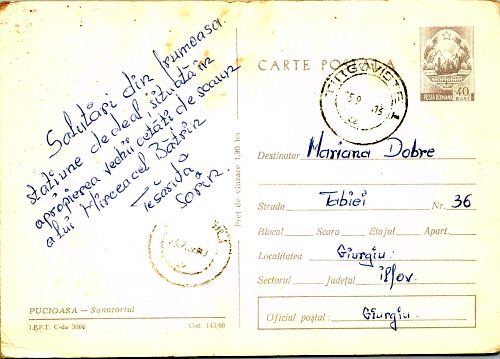 Salutări din frumoasa
stațiune de deal, situată în
apropierea vechii cetăți de scaun
a lui Mircea cel Bătrîn
Sorin
PUCIOASA — Sanatoriul
I.P.F.T. C-da 3066
Cod. 143/68
Preț de vînzare 1,90 lei
CARTE POȘTALĂ
TÎRGOVIȘTE
POSTA ROMANA 40 BANI
Destinatar Mariana Dobre
Strada Tabiei Nr. 36
Blocul Scara Etajul Apart.
Localitatea Giurgiu
Sectorul Județul Ilfov
Oficiul poștal: Giurgiu